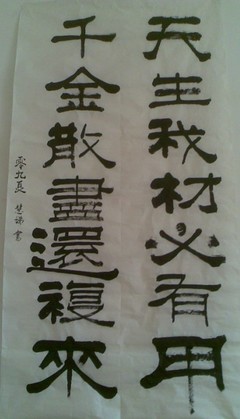 天生我材必有用
千金散盡還複來
零九夏 楚瑛書